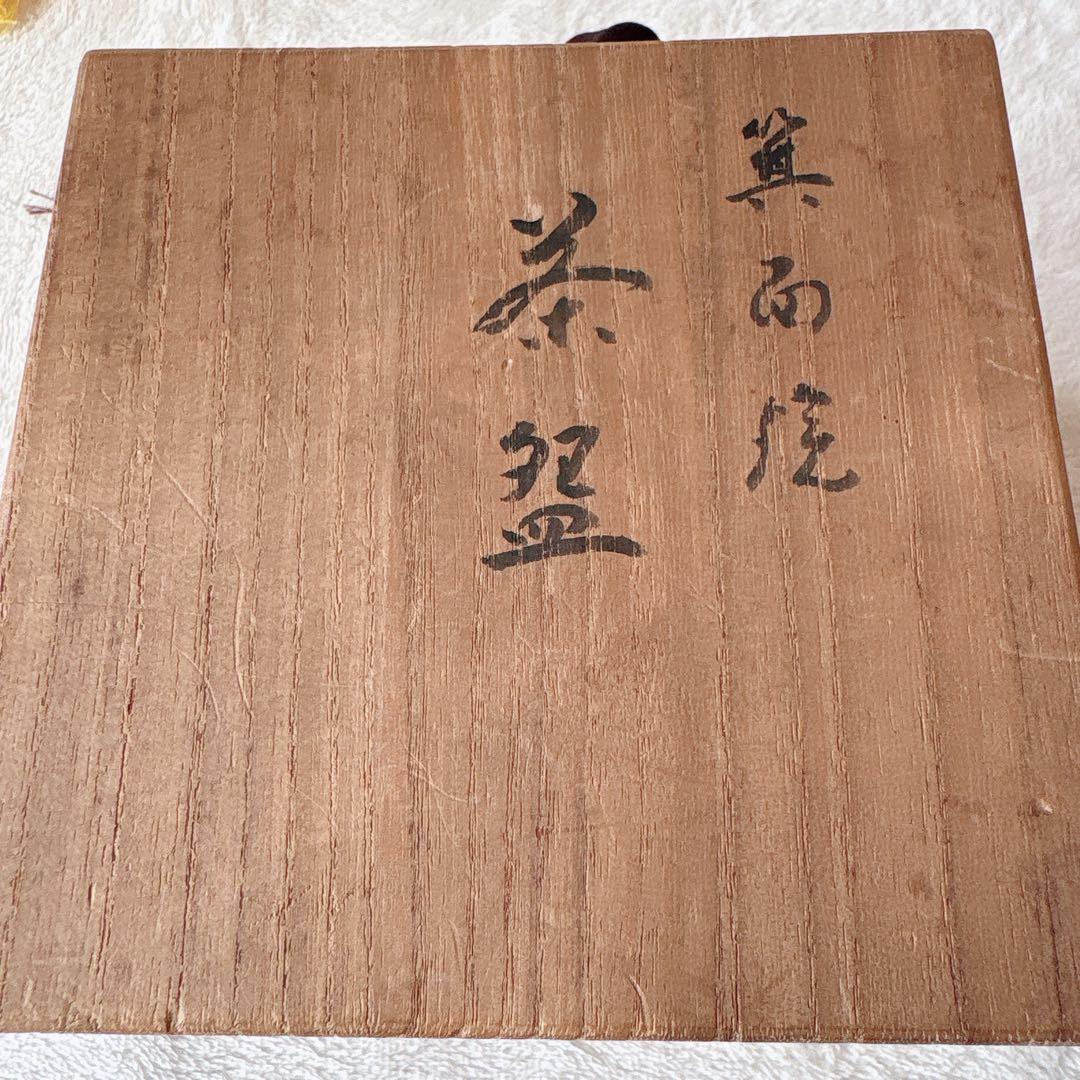 箕面焼
茶盌